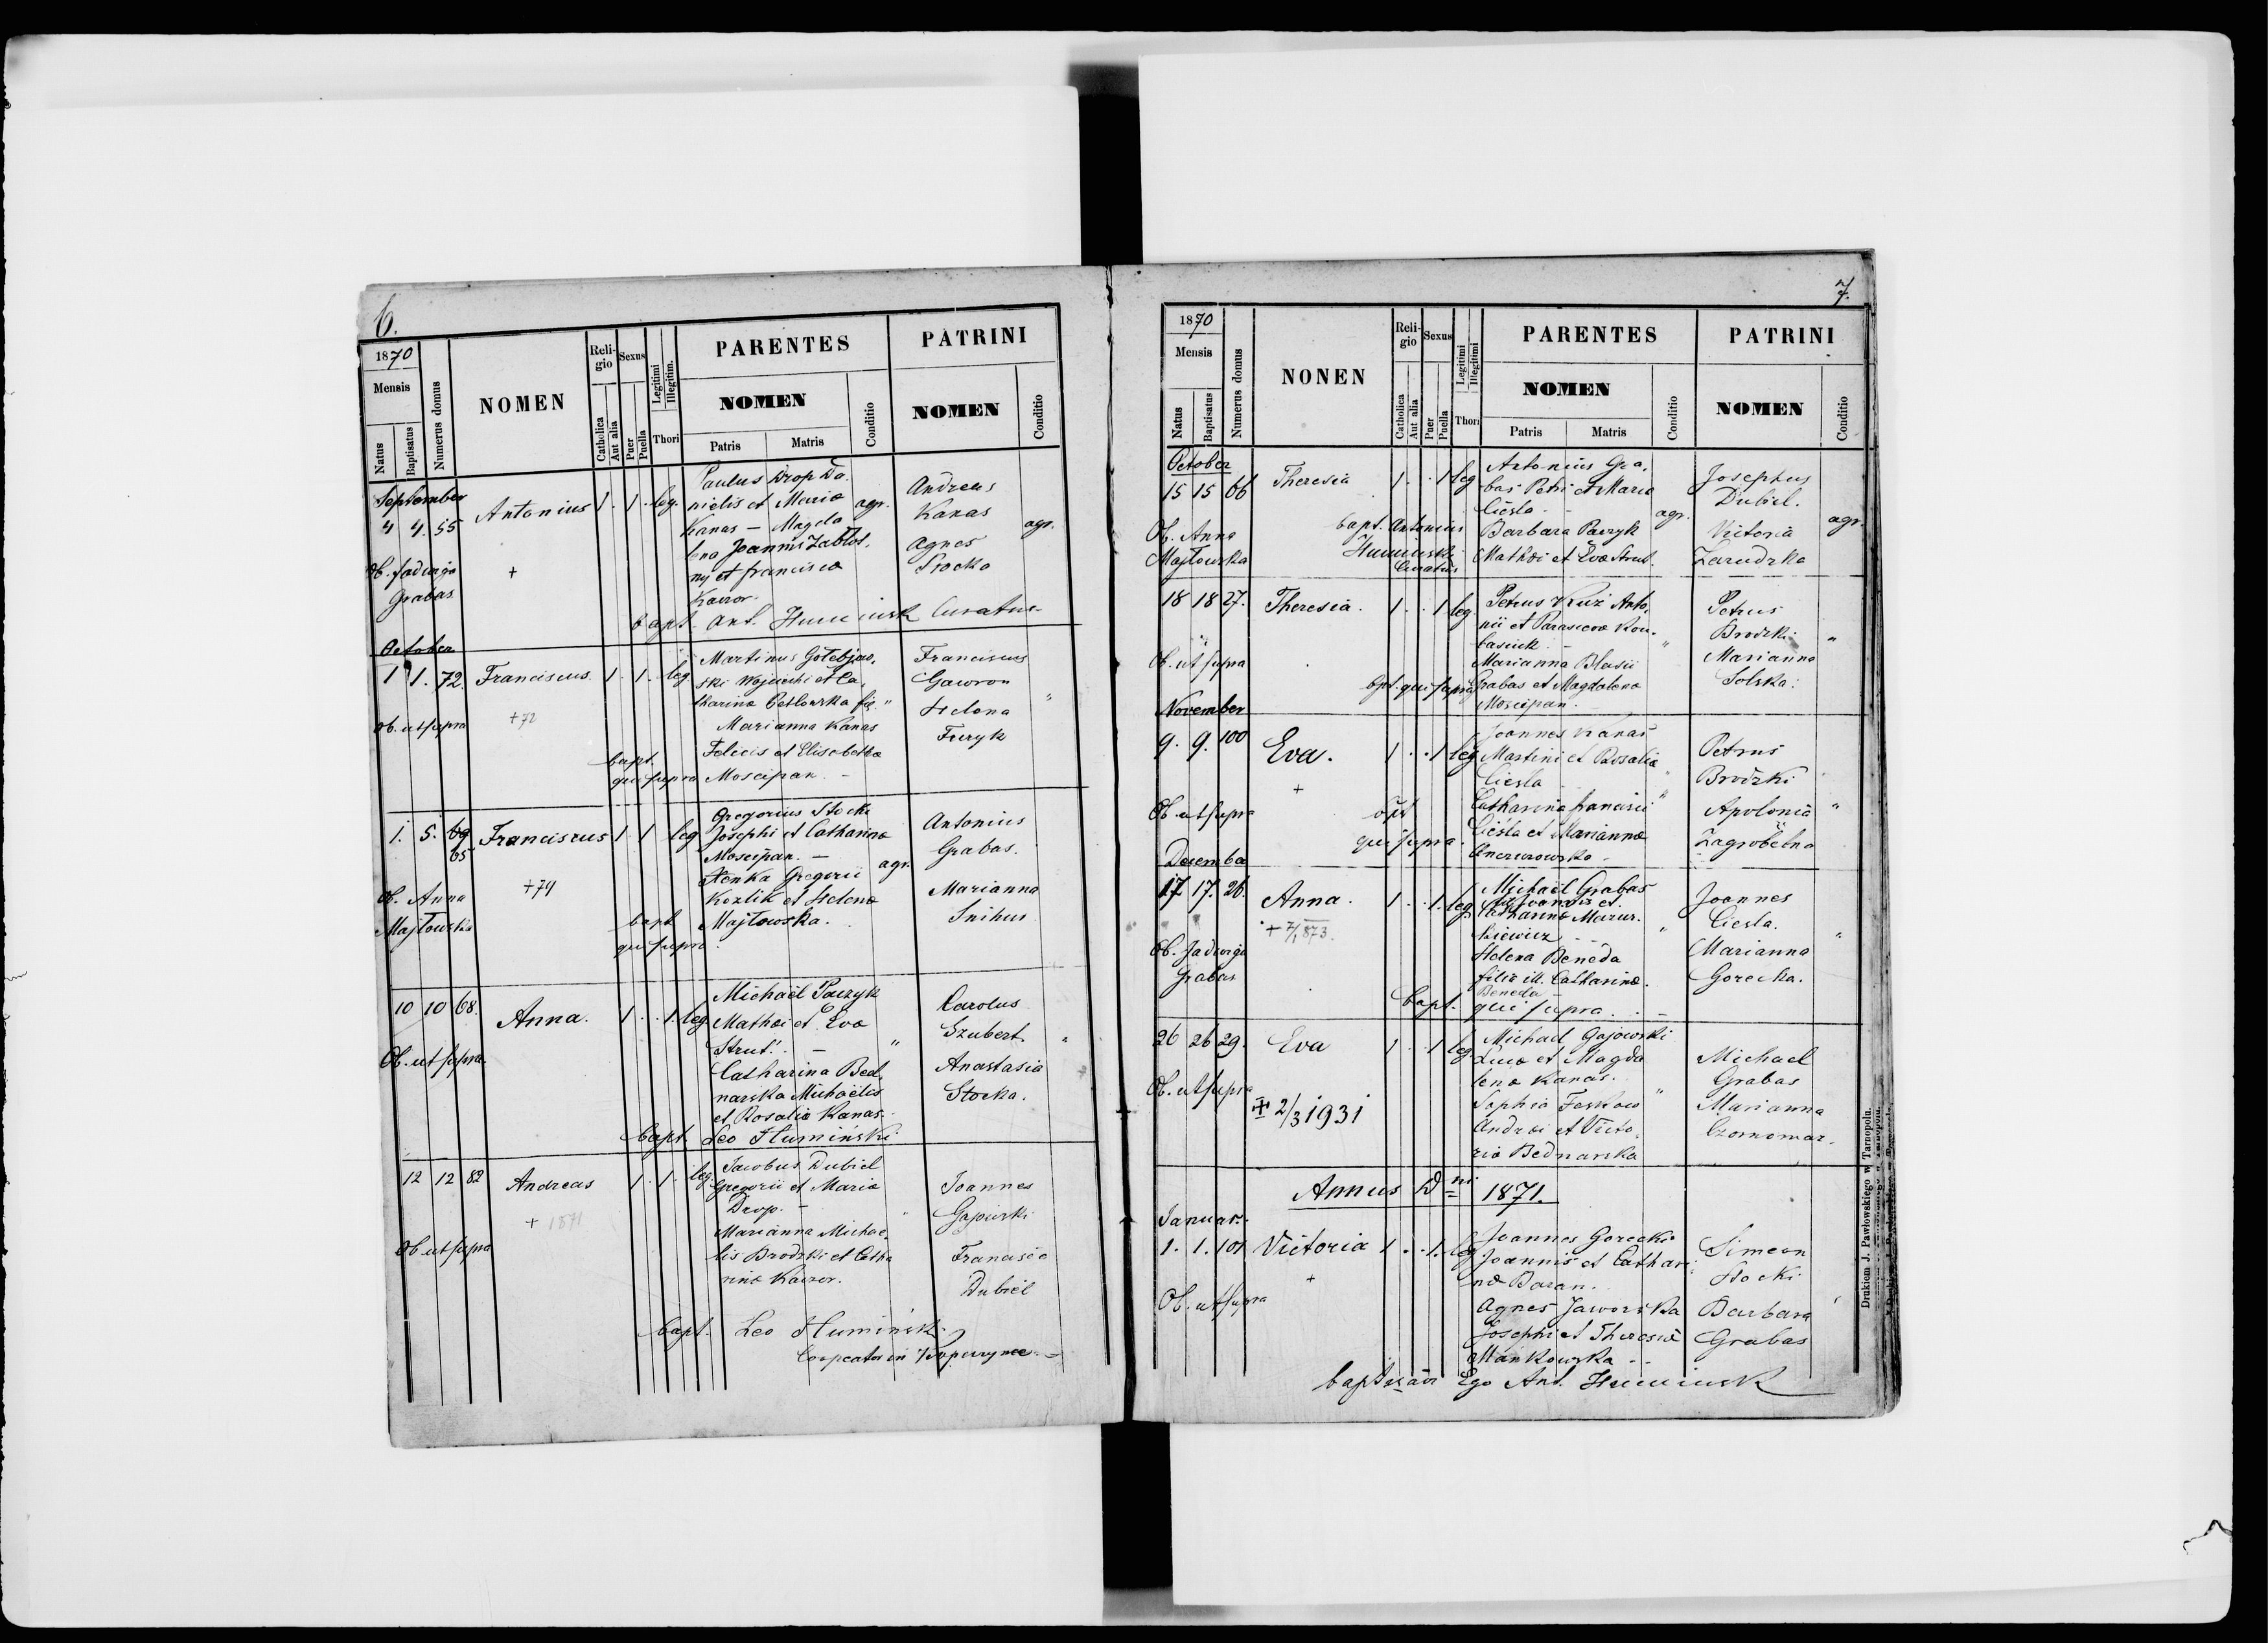 6.
1870
Mensis
Natus
Baptisatus
Numerus domus
NOMEN
Religio
Catholica
Aut alia
Sexus
Puer
Puella
Legitimi
Illegitim.
Thori
PARENTES
NOMEN
Patris
Matris
Conditio
PATRINI
NOMEN
Conditio
September
4 4. 55 Antonius 1. 1. leg.
Ob. Jadwiga
Grabas
+
Paulus Drop Da
nielis et Maria agr.
Kanas – Magda
lena Joannis Zabłot
ny et francisca
Kaczor.
Andreas
Kanas
agr.
Agnes
Stocka
bapt. Ant. Humiński Curatus
October
1 1. 72. Franciscus. 1. 1. leg
Ob. ut supra
+72
Martinus Gołebjow,
ski Wojciechi et Ca,
tharina Petlowska fil. "
Marianna Kanas
Felicis et Elisabetha
Moscipan. –
Franciscus
Gawron
"
Helena
Furyk
bapt.
qui supra
1. 5. 69 Franciscus 1. 1 leg
65
Ob. Anna
Majłowska
+74
Gregorius Stocki
Josephi et Catharina
Moscipan. – agr.
Henka Gregorii
Kozlik et Helena
Majłowska.
Antonius
Grabas.
Marianna
Snihur
bapt
qui supra.
10 10 68. Anna. 1. . 1. leg
Ob. ut supra.
Michaël Paczyk
Mathæi et Eva
Strut. – "
Catharina Bed,
narska Michaëlis
et Rosalia Kanas.
Carolus
Szubert.
"
Anastasia
Stocka.
bapt. Leo Humiński
12 12 82 Andreas 1. 1. leg.
Ob ut supra
+ 1871
Jacobus Dubiel
Gregorii et Maria
Drop. – "
Marianna Michae,
lis Brodzki et Catha
rina Kaczor.
Joannes
Gajewski
Francisca
Dubiel
bapt. Leo Humiński
Cooperator in
7.
1870
Mensis
Natus
Baptisatus
Numerus domus
NONEN
Religio
Catholica
Aut alia
Sexus
Puer
Puella
Legitimi
Illegitimi
Thori
PARENTES
NOMEN
Patris
Matris
Conditio
PATRINI
NOMEN
Conditio
October
15 15 66 Theresia 1. . 1 leg
Ob. Anna
Majłowska
Antonius Gra,
bas Petri et Maria
Ciesla – agr.
Barbara Paczyk
Mathæi et Eva Strut.
Josephus
Dubiel.
agr.
Victoria
Zarudzka
bapt. Antonius
Humiński
Curatus
18 18 27. Theresia. 1. . 1 leg
Ob. ut supra
Petrus Kuź Anto,
nii et Parasceva Kou
basiuk. – "
Marianna Blasii
Grabas et Magdalena
Moscipan.
Petrus
Brodzki
"
Marianna
Solska:
bpt. qui supra
November
9. 9. 100 Eva. 1 . . 1 leg
Ob ut supra
+
Joannes Kanas
Martini et Rosalia
Ciesla "
Catharina francisci
Ciesla et Marianna
Petrus
Brodzki
"
Apolonia
Zagrobelna
bpt
qui supra.
December
17 17. 26. Anna. 1. . 1. leg
+ 7/1 873.
Ob. Jadwiga
Grabas
Michaël Grabas
Joannis et
Catharina Mazur.
kiewicz – "
Helena Beneda
filia ill. Catharina.
Beneda
Joannes
Ciesla.
"
Marianna
Gorecka.
bapt. qui supra. –
26 26 29. Eva 1. . 1 leg
Ob. ut supra
+ 2/3 1931
Michael Gajowski
Luca et Magda
lena Kanas.
Sophia Feskow "
Andrei et Victo,
ria Bednarska
Michael
Grabas
Marianna
Czornomaz.
Annus Dni 1871.
Januar.
1. 1. 101 Victoria 1. . 1. leg
Ob. ut supra
+
Joannes Gorecki
Joannis et Cathari
na Baran.
Agnes Jaworska
Josephi et Theresia
Mankowska –
Simeon
Stocki
Barbara
Grabas
baptizavi Ego Ant. Humiński
Drukiem J. Pawłowskiego w Tarnopolu.